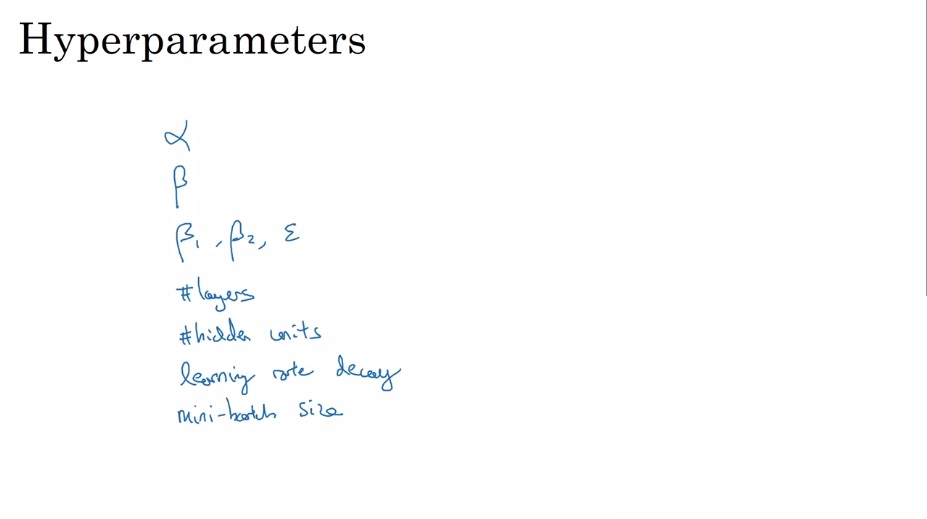 Hyperparameters
α
β
β₁, β₂, ε
#layers
#hidden units
learning rate decay
mini-batch size